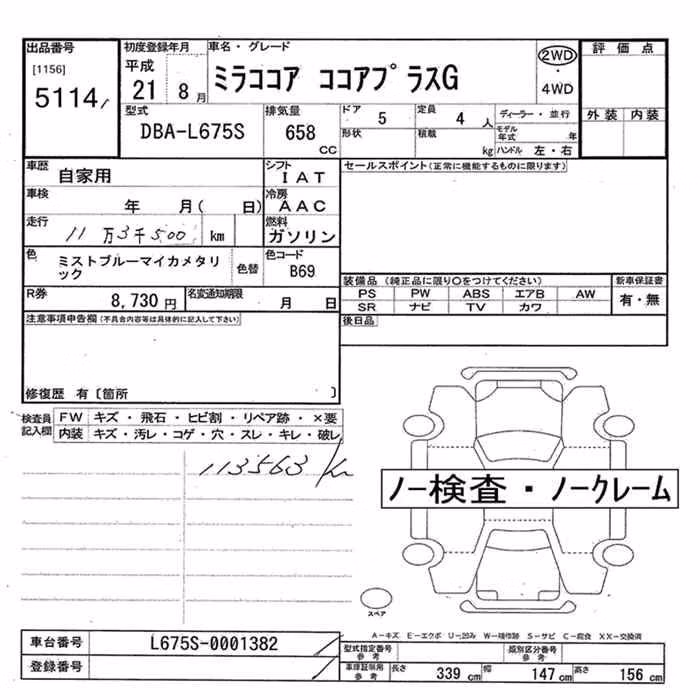 出品番号
[1156]
5114
初度登録年月
平成
21 8月
車名・グレード
ミラココア ココアプラスG
2WD
・
4WD
評価点
外装 内装
型式
DBA-L675S
排気量
658
CC
ドア 5
定員 4 人
形状
積載 kg
ディーラー・並行
モデル年式 年
ハンドル 左・右
車歴
自家用
シフト
IAT
車検
年 月( 日)
冷房
AAC
走行
11万3千500 km
燃料
ガソリン
色
ミストブルーマイカメタリック
色替
色コード
B69
R券
8,730 円
名変通知期限
月 日
セールスポイント(正常に機能するものに限ります)
装備品(純正品に限り○をつけてください)
PS PW ABS エアB AW
SR ナビ TV カワ
新車保証書
有・無
後日品
注意事項申告欄(不具合内容等は具体的に記入して下さい)
修復歴 有〔箇所 〕
検査員記入欄
FW キズ・飛石・ヒビ割・リペア跡・×要
内装 キズ・汚レ・コゲ・穴・スレ・キレ・破レ
113563 km
ノー検査・ノークレーム
スペア
A-キズ E-エクボ U-凹み W-補修跡 S-サビ C-腐食 XX-交換済
車台番号
L675S-0001382
登録番号
型式指定番号
参考
類別区分番号
参考
車庫証明用
参考
長さ 339 cm
幅 147 cm
高さ 156 cm